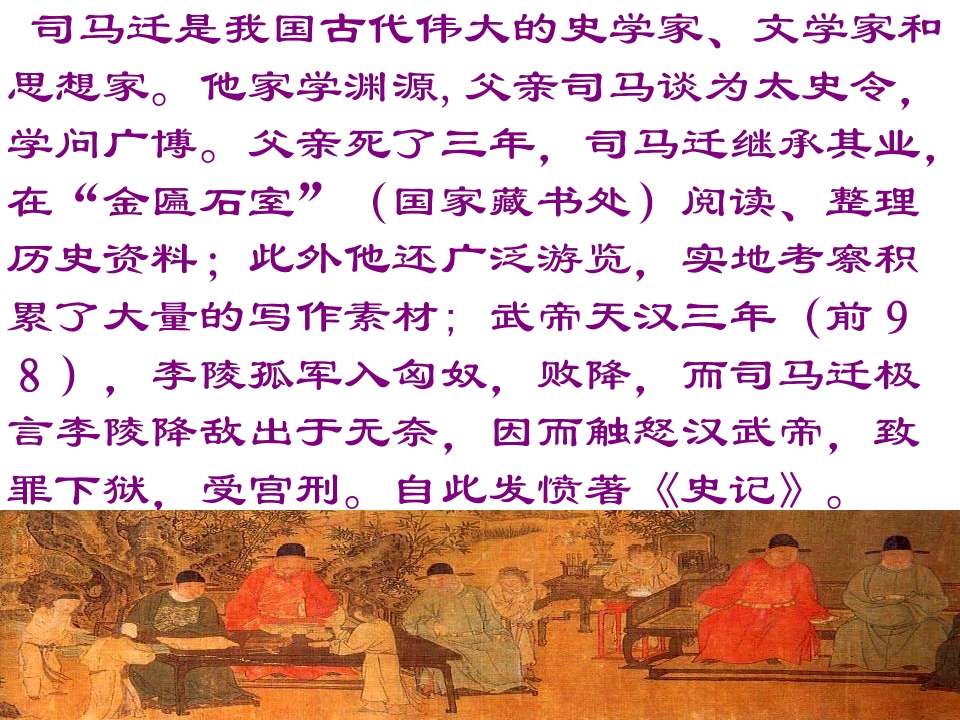 司马迁是我国古代伟大的史学家、文学家和
思想家。他家学渊源,父亲司马谈为太史令，
学问广博。父亲死了三年，司马迁继承其业，
在“金匾石室”（国家藏书处）阅读、整理
历史资料；此外他还广泛游览，实地考察积
累了大量的写作素材；武帝天汉三年（前９
８），李陵孤军入匈奴，败降，而司马迁极
言李陵降敌出于无奈，因而触怒汉武帝，致
罪下狱，受宫刑。自此发愤著《史记》。